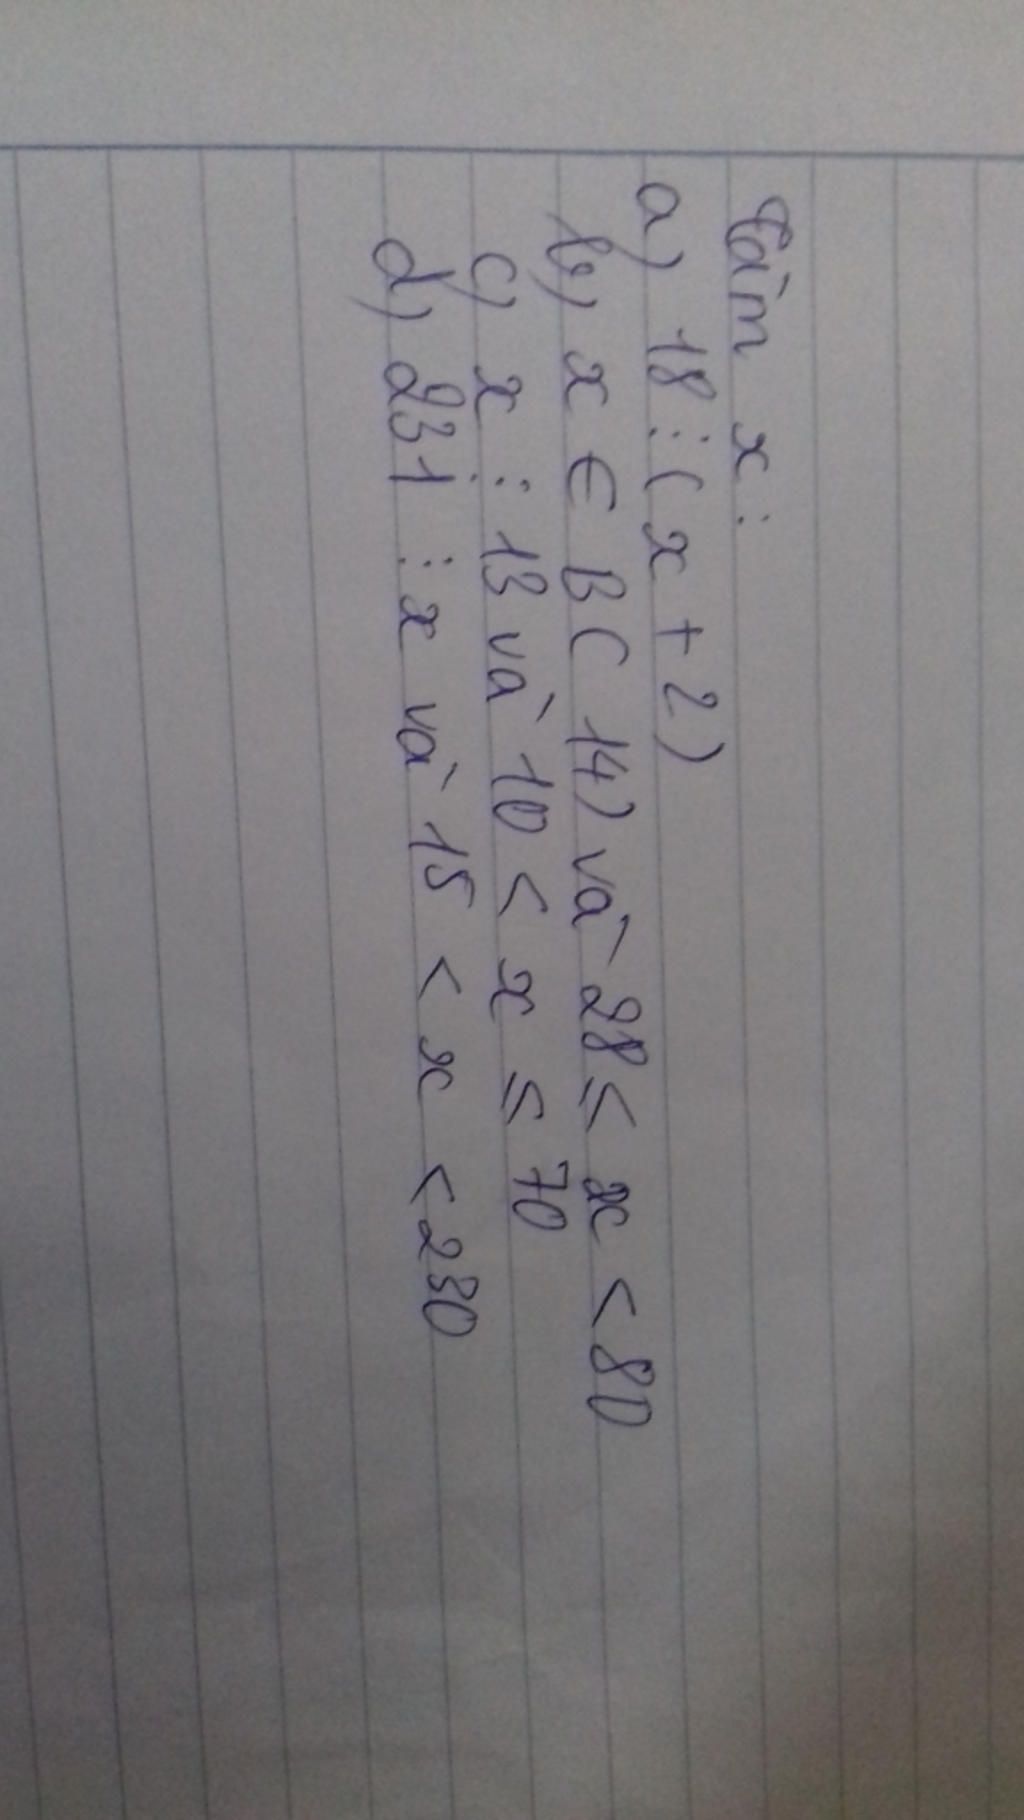 Tìm x :
a) 18 ⋮ ( x + 2 )
b) x ∈ B ( 14 ) và 28 ≤ x < 80
c) x ⋮ 13 và 10 < x ≤ 70
d) 231 ⋮ x và 15 < x < 230